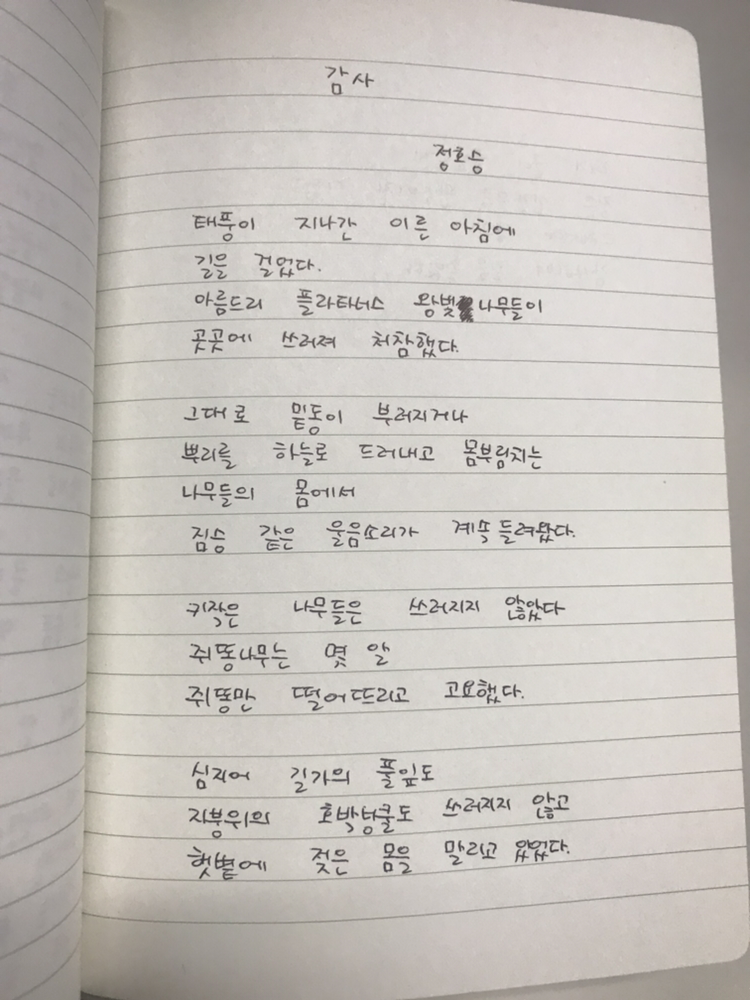 감사
정호승
태풍이 지나간 이른 아침에
길을 걸었다.
아름드리 플라타너스 왕벚나무들이
곳곳에 쓰러져 처참했다.
그대로 밑동이 부러지거나
뿌리를 하늘로 드러내고 몸부림치는
나무들의 몸에서
짐승 같은 울음소리가 계속 들려왔다.
키작은 나무들은 쓰러지지 않았다
쥐똥나무는 몇 알
쥐똥만 떨어뜨리고 고요했다.
심지어 길가의 풀잎도
지붕위의 호박넝쿨도 쓰러지지 않고
햇볕에 젖은 몸을 말리고 있었다.